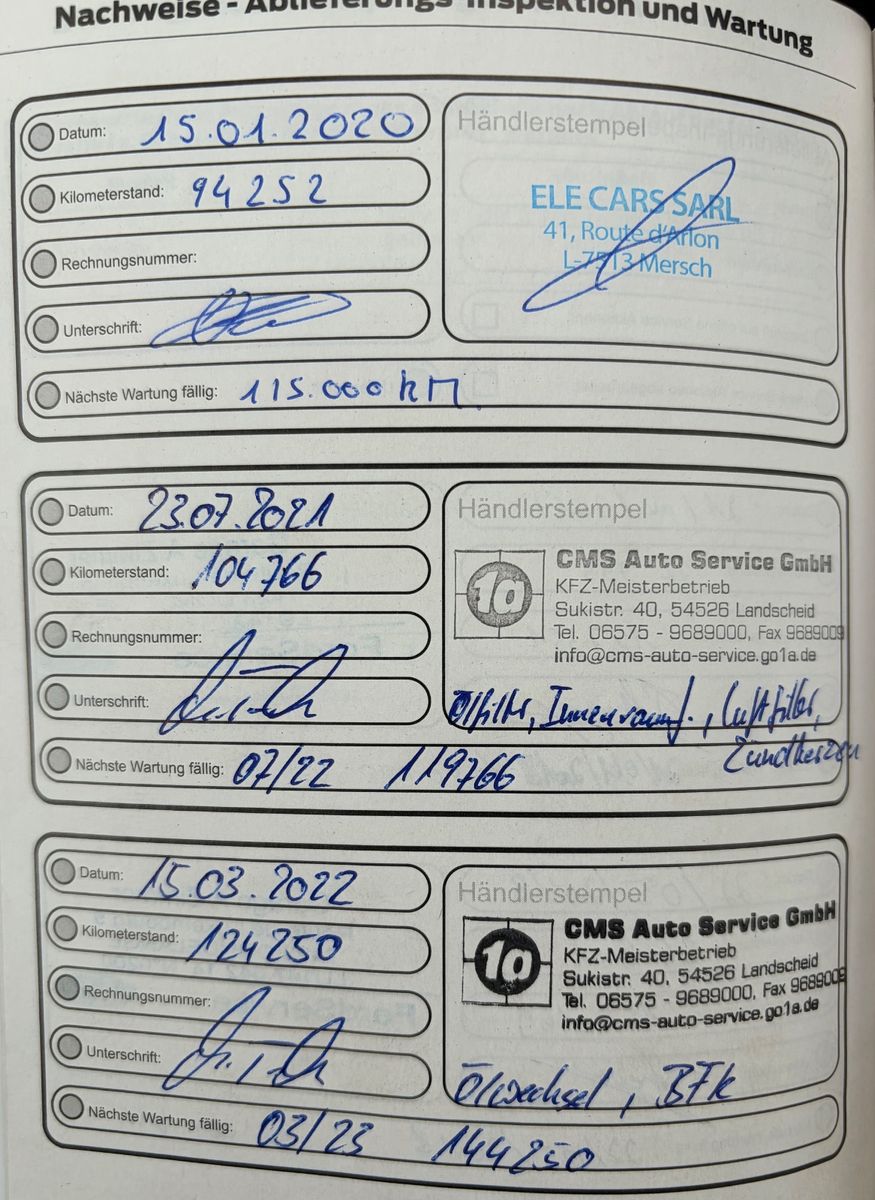 Nachweise - Ablieferungs-Inspektion und Wartung
Datum: 15.01.2020
Kilometerstand: 94252
Rechnungsnummer:
Unterschrift:
Nächste Wartung fällig: 115.000 KM
Händlerstempel
ELE CARS SARL
41, Route d'Arlon
L-7513 Mersch
Datum: 23.07.2021
Kilometerstand: 104766
Rechnungsnummer:
Unterschrift:
Nächste Wartung fällig: 07/22 119766
Händlerstempel
1a
CMS Auto Service GmbH
KFZ-Meisterbetrieb
Sukistr. 40, 54526 Landscheid
Tel. 06575 - 9689000, Fax 9689009
info@cms-auto-service.go1a.de
Ölfilter, Innenraumf., Luftfilter,
Zündkerzen
Datum: 15.03.2022
Kilometerstand: 124250
Rechnungsnummer:
Unterschrift:
Nächste Wartung fällig: 03/23 144250
Händlerstempel
1a
CMS Auto Service GmbH
KFZ-Meisterbetrieb
Sukistr. 40, 54526 Landscheid
Tel. 06575 - 9689000, Fax 9689009
info@cms-auto-service.go1a.de
Ölwechsel, BFK